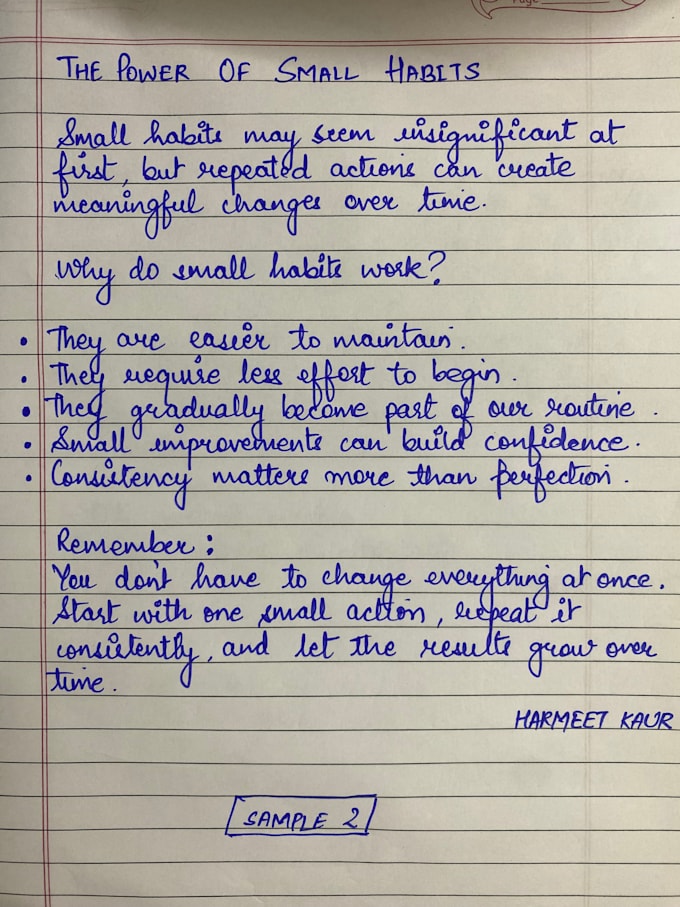 Page
THE POWER OF SMALL HABITS
Small habits may seem insignificant at
first, but repeated actions can create
meaningful changes over time.
Why do small habits work?
• They are easier to maintain.
• They require less effort to begin.
• They gradually become part of our routine.
• Small improvements can build confidence.
• Consistency matters more than perfection.
Remember:
You don't have to change everything at once.
Start with one small action, repeat it
consistently, and let the results grow over
time.
HARMEET KAUR
SAMPLE 2